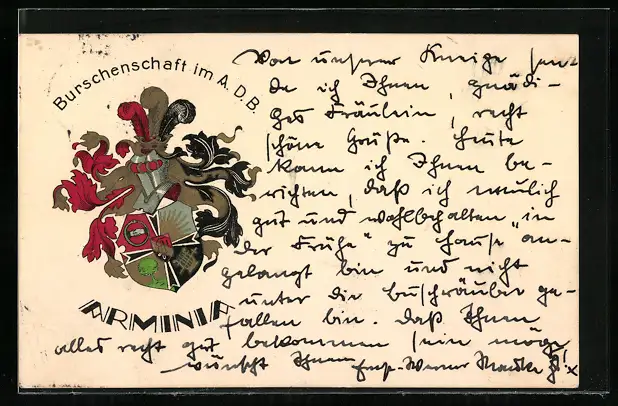 Burschenschaft im A.D.B.
ARMINIA
Von unserer Kneipe sen-
de ich Ihnen, gnädi-
ges Fräulein, recht
schöne Grüße. Heute
kann ich Ihnen be-
richten, daß ich neulich
gut und wohlbehalten "in
der Frühe" zu Hause an-
gelangt bin und nicht
unter die Buschräuber ge-
fallen bin. Daß Ihnen
alles recht gut bekommen sein möge,
wünscht Ihnen Werner